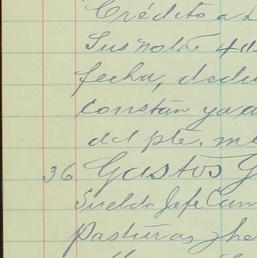 Crédito a
Sus notas 4
fecha, dedu
constan ya a
del pte. me
36 Gastos G
Sueldo Jefe Cam
Pasturas, he